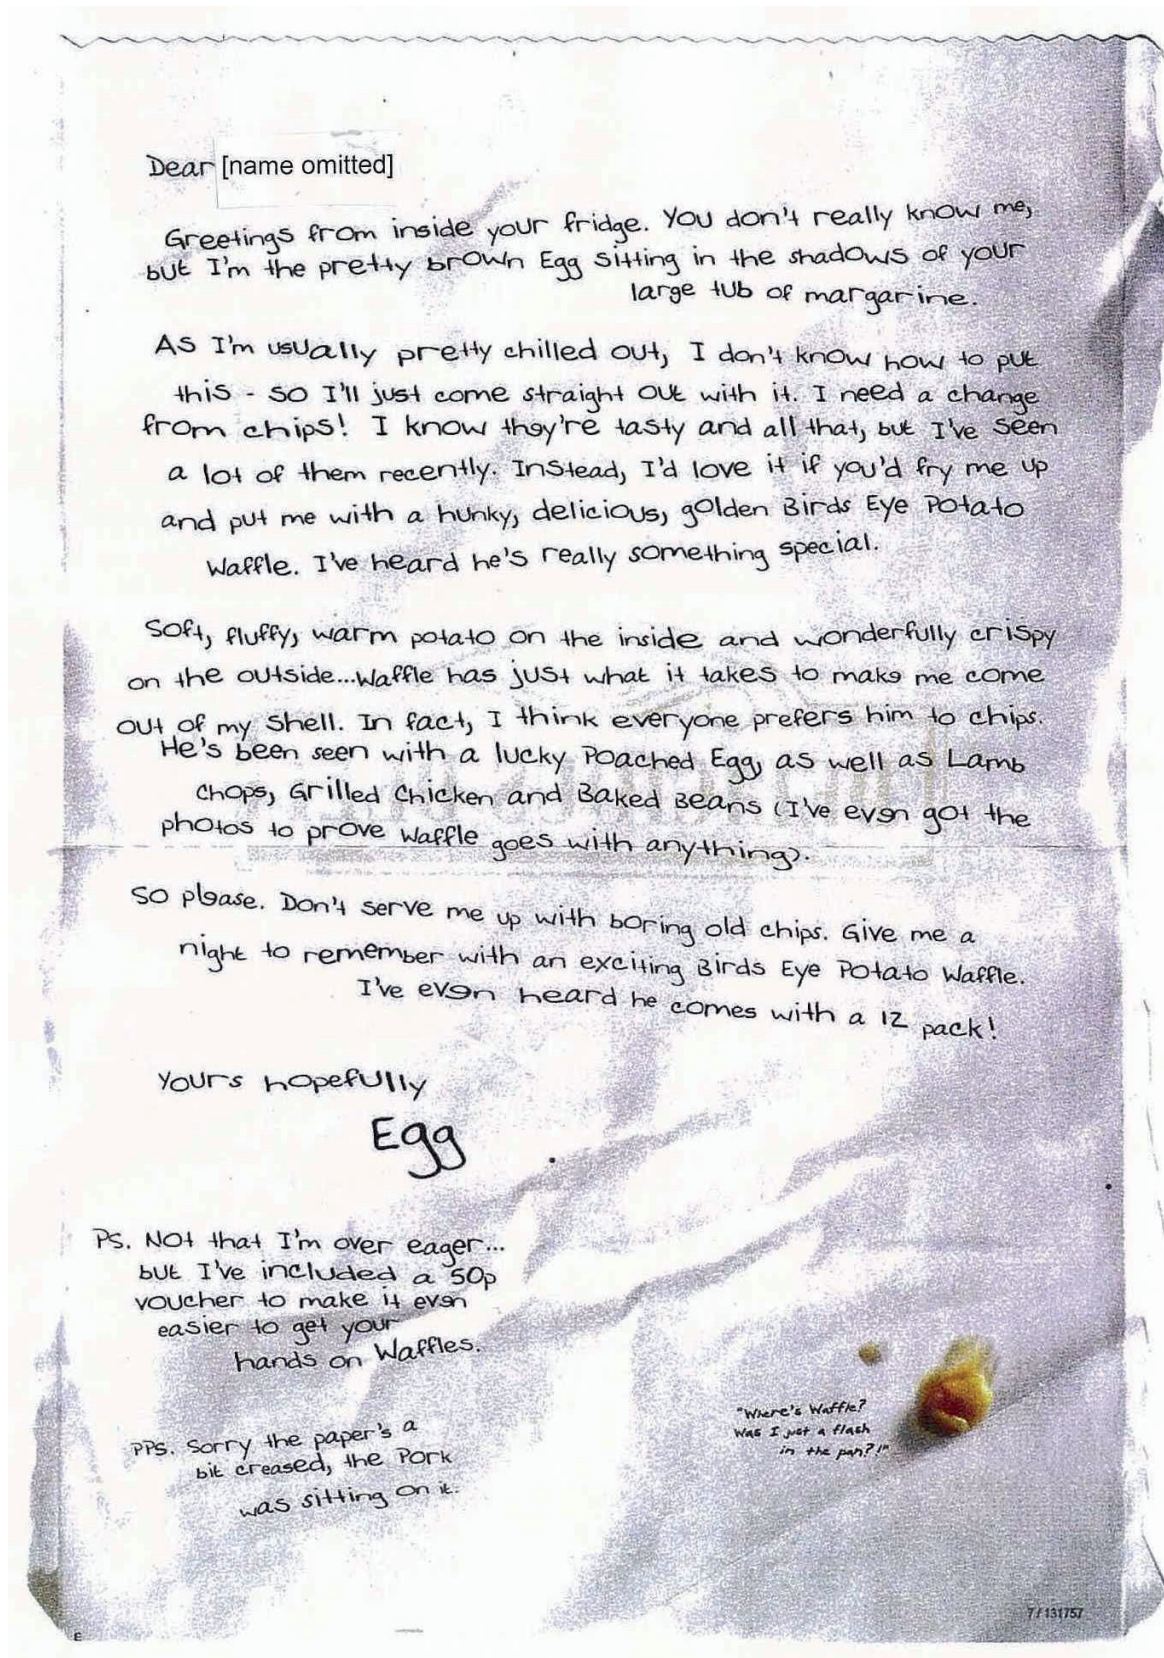 Dear [name omitted]
Greetings from inside your fridge. You don't really know me,
but I'm the pretty brown Egg sitting in the shadows of your
large tub of margarine.
As I'm usually pretty chilled out, I don't know how to put
this - so I'll just come straight out with it. I need a change
from chips! I know they're tasty and all that, but I've seen
a lot of them recently. Instead, I'd love it if you'd fry me up
and put me with a hunky, delicious, golden Birds Eye Potato
Waffle. I've heard he's really something special.
Soft, fluffy, warm potato on the inside and wonderfully crispy
on the outside...Waffle has just what it takes to make me come
out of my shell. In fact, I think everyone prefers him to chips.
He's been seen with a lucky Poached Egg, as well as Lamb
Chops, Grilled Chicken and Baked Beans (I've even got the
photos to prove Waffle goes with anything).
So please. Don't serve me up with boring old chips. Give me a
night to remember with an exciting Birds Eye Potato Waffle.
I've even heard he comes with a 12 pack!
Yours hopefully
Egg
PS. Not that I'm over eager...
but I've included a 50p
voucher to make it even
easier to get your
hands on Waffles.
PPS. Sorry the paper's a
bit creased, the Pork
was sitting on it.
"Where's Waffle?
Was I just a flash
in the pan?!"
7/131757
E